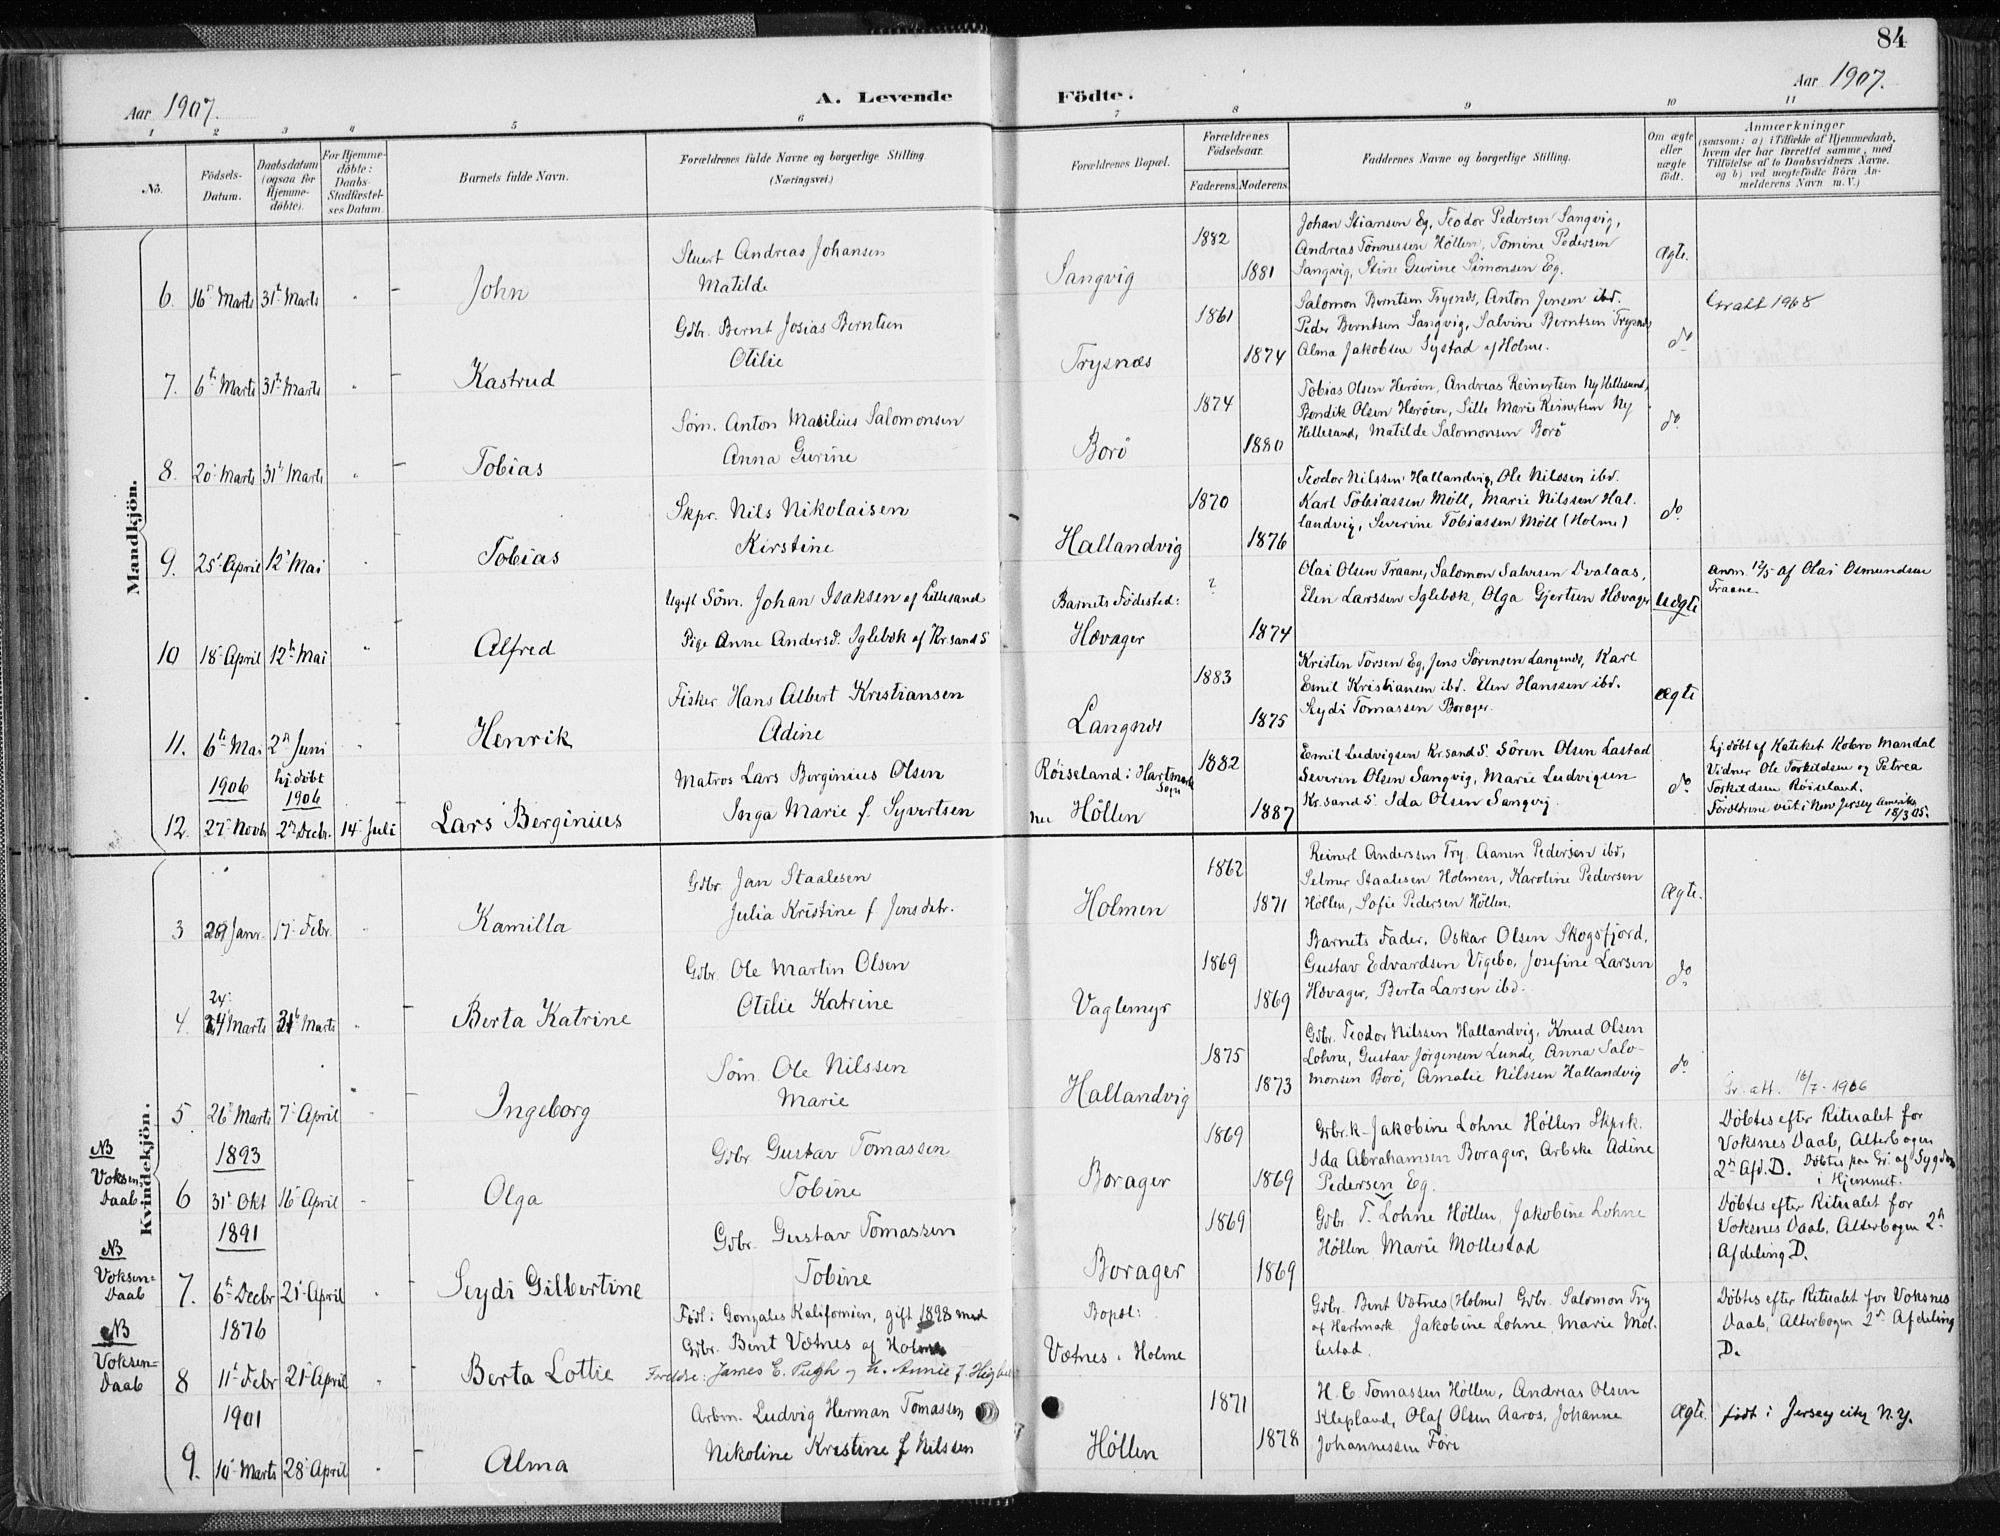 84
Aar 1907.
A. Levende Födte.
Aar 1907.
1 2 3 4 5 6 7 8 9 10 11
No.
Födsels-Datum.
Daabsdatum (ogsaa for Hjemme-döbte).
For Hjemme-döbte: Daabs-Stadfæstel-ses Datum.
Barnets fulde Navn.
Forældrenes fulde Navne og borgerlige Stilling. (Næringsvei.)
Forældrenes Bopæl.
Forældrenes Födselsaar.
Faderens. Moderens.
Faddernes Navne og borgerlige Stilling.
Om ægte eller uægte födt.
Anmærkninger
(saasom: a) i Tilfælde af Hjemmedaab, hvem der har forrettet samme, med Tilföielse af to Daabsvidners Navne. og b) ved uægtefödte Börn An-melderens Navn m.V.)
Mandkjön.
6. 16 Marts 31t Marts " John
Stuert Andreas Johansen
Matilde
Sangvig 1882 1881
Johan Stiansen Eg, Teodor Pedersen Sangvig,
Andreas Tönnessen Höllen, Tomine Pedersen
Sangvig, Stine Gurine Simonsen Eg.
Ægte.
7. 6t Marts 31t Marts " Kastrud
Gdbr. Bernt Josias Berntsen
Otilie
Trysnæs 1861 1874
Salomon Berntsen Trysnæs, Anton Jensen ibd.
Peder Berntsen Sangvig, Salvine Berntsen Trysnæs
Alma Jakobsen Systad af Holme.
do
1968
8. 20 Marts 31t Marts " Tobias
Söm. Anton Masilius Salomonsen
Anna Gurine
Borö 1874 1880
Tobias Olsen Heröen, Andreas Reinertsen Ny Hellesund,
Bendik Olsen Heröen, Sille Marie Reinertsen Ny
Hellesund, Matilde Salomonsen Borö
do
9. 25 April 12 Mai " Tobias
Skpr. Nils Nikolaisen
Kirstine
Hallandvig 1870 1876
Teodor Nilssen Hallandvig, Ole Nilssen ibd.
Karl Tobiassen Möll, Marie Nilssen Hal-
landvig, Severine Tobiassen Möll (Holme)
do
10 18 April 12t Mai " Alfred
Ugift Söm. Johan Isaksen af Lillesand
Pige Anne Andersd. Iglebæk af Kr.sand S
Barnets Födested:
Hævager ? 1874
Olai Olsen Traane, Salomon Salvesen Dvalaas,
Elen Larssen Iglebæk, Olga Gjertsen Hævager
Uægte
Anm. 12/5 af Olai Osmundsen
Traane
11. 6t Mai 2n Juni " Henrik
Fisker Hans Albert Kristiansen
Adine
Langnes 1883 1875
Kristen Torsen Eg, Jens Sörensen Langenes, Karl
Emil Kristiansen ibd. Elen Hanssen ibd.
Seydi Tomassen Borager.
Ægte
12. 1906 27 Novb hj.döbt 1906 2n Decbr. 14 Juli Lars Berginius
Matros Lars Berginius Olsen
Inga Marie f. Syvertsen
Röiseland i Hartmark Sogn
nu Höllen 1882 1887
Emil Ludvigsen Kr.sand S. Sören Olsen Lastad
Severin Olsen Sangvig, Marie Ludvigsen
Kr.sand S. Ida Olsen Sangvig.
do
hj.döbt af Kateket Kobro Mandal
Vidner Ole Torkildsen og Petrea
Torkildsen Röiseland.
Forældrene viet i New Jersey Amerika 18/3 05.
Kvindekjön.
3 29 Janr. 17 Febr. " Kamilla
Gdbr. Jan Staalesen
Julia Kristine f. Jensdtr.
Holmen 1862 1871
Reinert Anderssen Try. Aanen Pedersen ibd,
Selmer Staalesen Holmen, Karoline Pedersen
Höllen, Sofie Pedersen Höllen.
Ægte.
4. 24 Marts 31t Marts " Berta Katrine
Gdbr. Ole Martin Olsen
Otilie Katrine
Vaglemyr 1869 1869
Barnets Fader, Oskar Olsen Skogsfjord,
Gustav Edvardsen Vigebo, Josefine Larsen
Hævager, Berta Larsen ibd.
do
5 26 Marts 7 April " Ingeborg
Söm. Ole Nilssen
Marie
Hallandvig 1875 1873
Gdbr. Teodor Nilssen Hallandvig, Knud Olsen
Lohne, Gustav Jörgensen Lunde, Anna Salo-
monsen Borö, Amalie Nilssen Hallandvig
do
NB Voksen-Daab
6 1893 31t Okt 16 April Olga
Gdbr. Gustav Tomassen
Tobine
Borager 1869 1869
Gdbr.k. Jakobine Lohne Höllen Skprk.
Ida Abrahamsen Borager, Arbske Adine
Pedersen Eg.
Döbtes efter Ritualet for
Voksnes Daab, Alterbogen
2n Afd. D. Döbtes paa Gr. af Sygdom
i Hjemmet.
NB Voksen-Daab
7. 1891 6t Decbr 21 April " Seydi Gilbertine
Gdbr. Gustav Tomassen
Tobine
Borager 1869 1869
Gdbr. T. Lohne Höllen, Jakobine Lohne
Höllen Marie Mollestad
Döbtes efter Ritualet for
Voksnes Daab, Alterbogen 2n
Afdeling D.
NB Voksen-Daab
8 1876 11t Febr 21 April " Berta Lottie
Födt i Gonzales Kalifornien, gift 1898 med
Gdbr. Bent Vætnes af Holme
Foreldre: James E. Pugh og h. Annie f.
Bopæl:
Vætnes i Holme
Gdbr. Bent Vætnes (Holme) Gdbr. Salomon Try
af Hartmark Jakobine Lohne, Marie Mol-
lestad.
Döbtes efter Ritualet for Voksnes
Daab, Alterbogen 2n Afdeling
D.
9. 1901 10 Marts 28 April " Alma
Arbm. Ludvig Herman Tomassen
Nikoline Kristine f. Nilssen
Höllen 1871 1878
H. C. Tomassen Höllen, Andreas Olsen
Klepland, Olaf Olsen Aaros, Johanne
Johannessen Föri
Ægte.
födt i Jersey city N.Y.